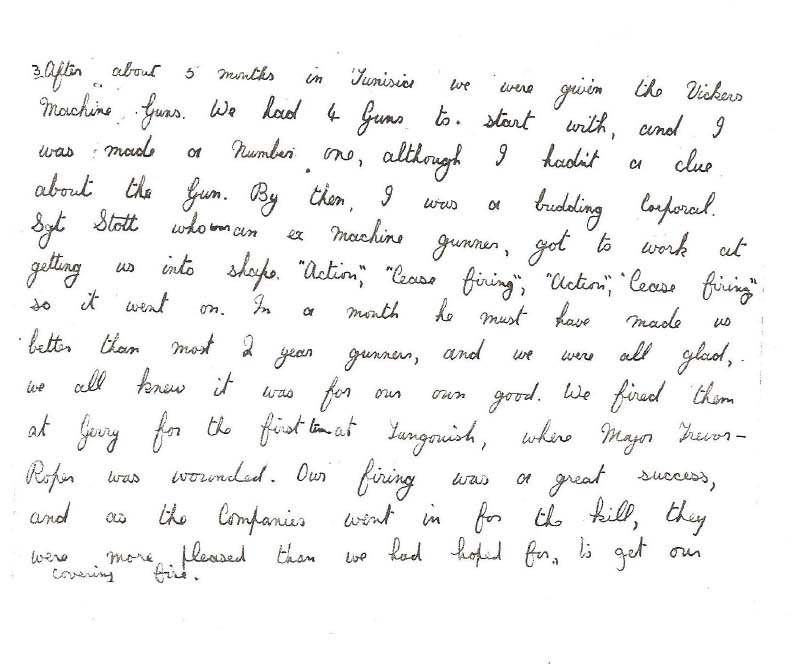 3. After about 5 months in Tunisia we were given the Vickers
Machine Guns. We had 4 Guns to start with, and I
was made a Number one, although I hadn't a clue
about the Gun. By then, I was a budding Corporal.
Sgt Stott who was an ex Machine gunner, got to work at
getting us into shape. "Action", "Cease firing", "Action", "Cease firing"
so it went on. In a month he must have made us
better than most 2 year gunners, and we were all glad,
we all knew it was for our own good. We fired them
at Jerry for the first time at Tangoucha, where Major Trevor-
Roper was wounded. Our firing was a great success,
and as the Companies went in for the kill, they
were more pleased than we had hoped for, to get our
covering fire.